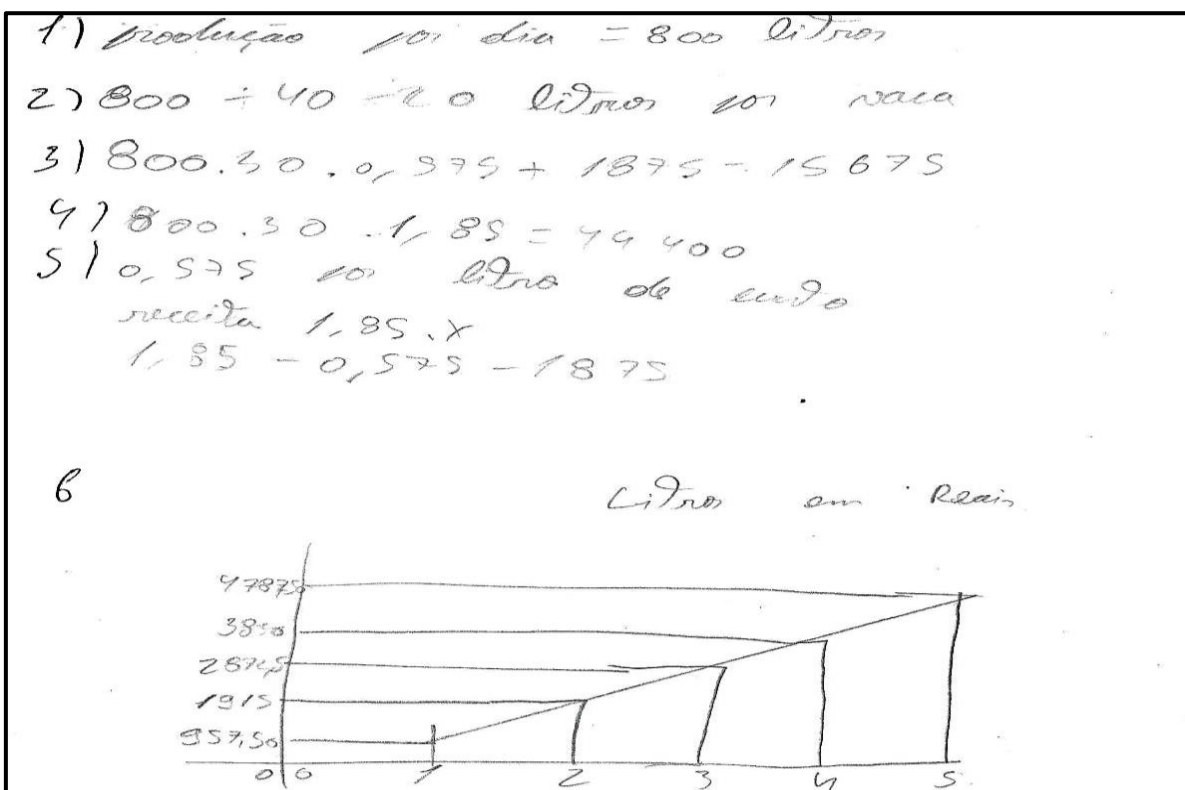 1) produção por dia = 800 litros
2) 800 ÷ 40 = 20 litros por vaca
3) 800.30.0,575 + 1875 = 15675
4) 800.30.1,85 = 44 400
5) 0,575 por litro de custo
receita 1,85.x
1,85 - 0,575 - 1875
6
Litros em Reais
47875
3830
2872,5
1915
957,50
0 0 1 2 3 4 5